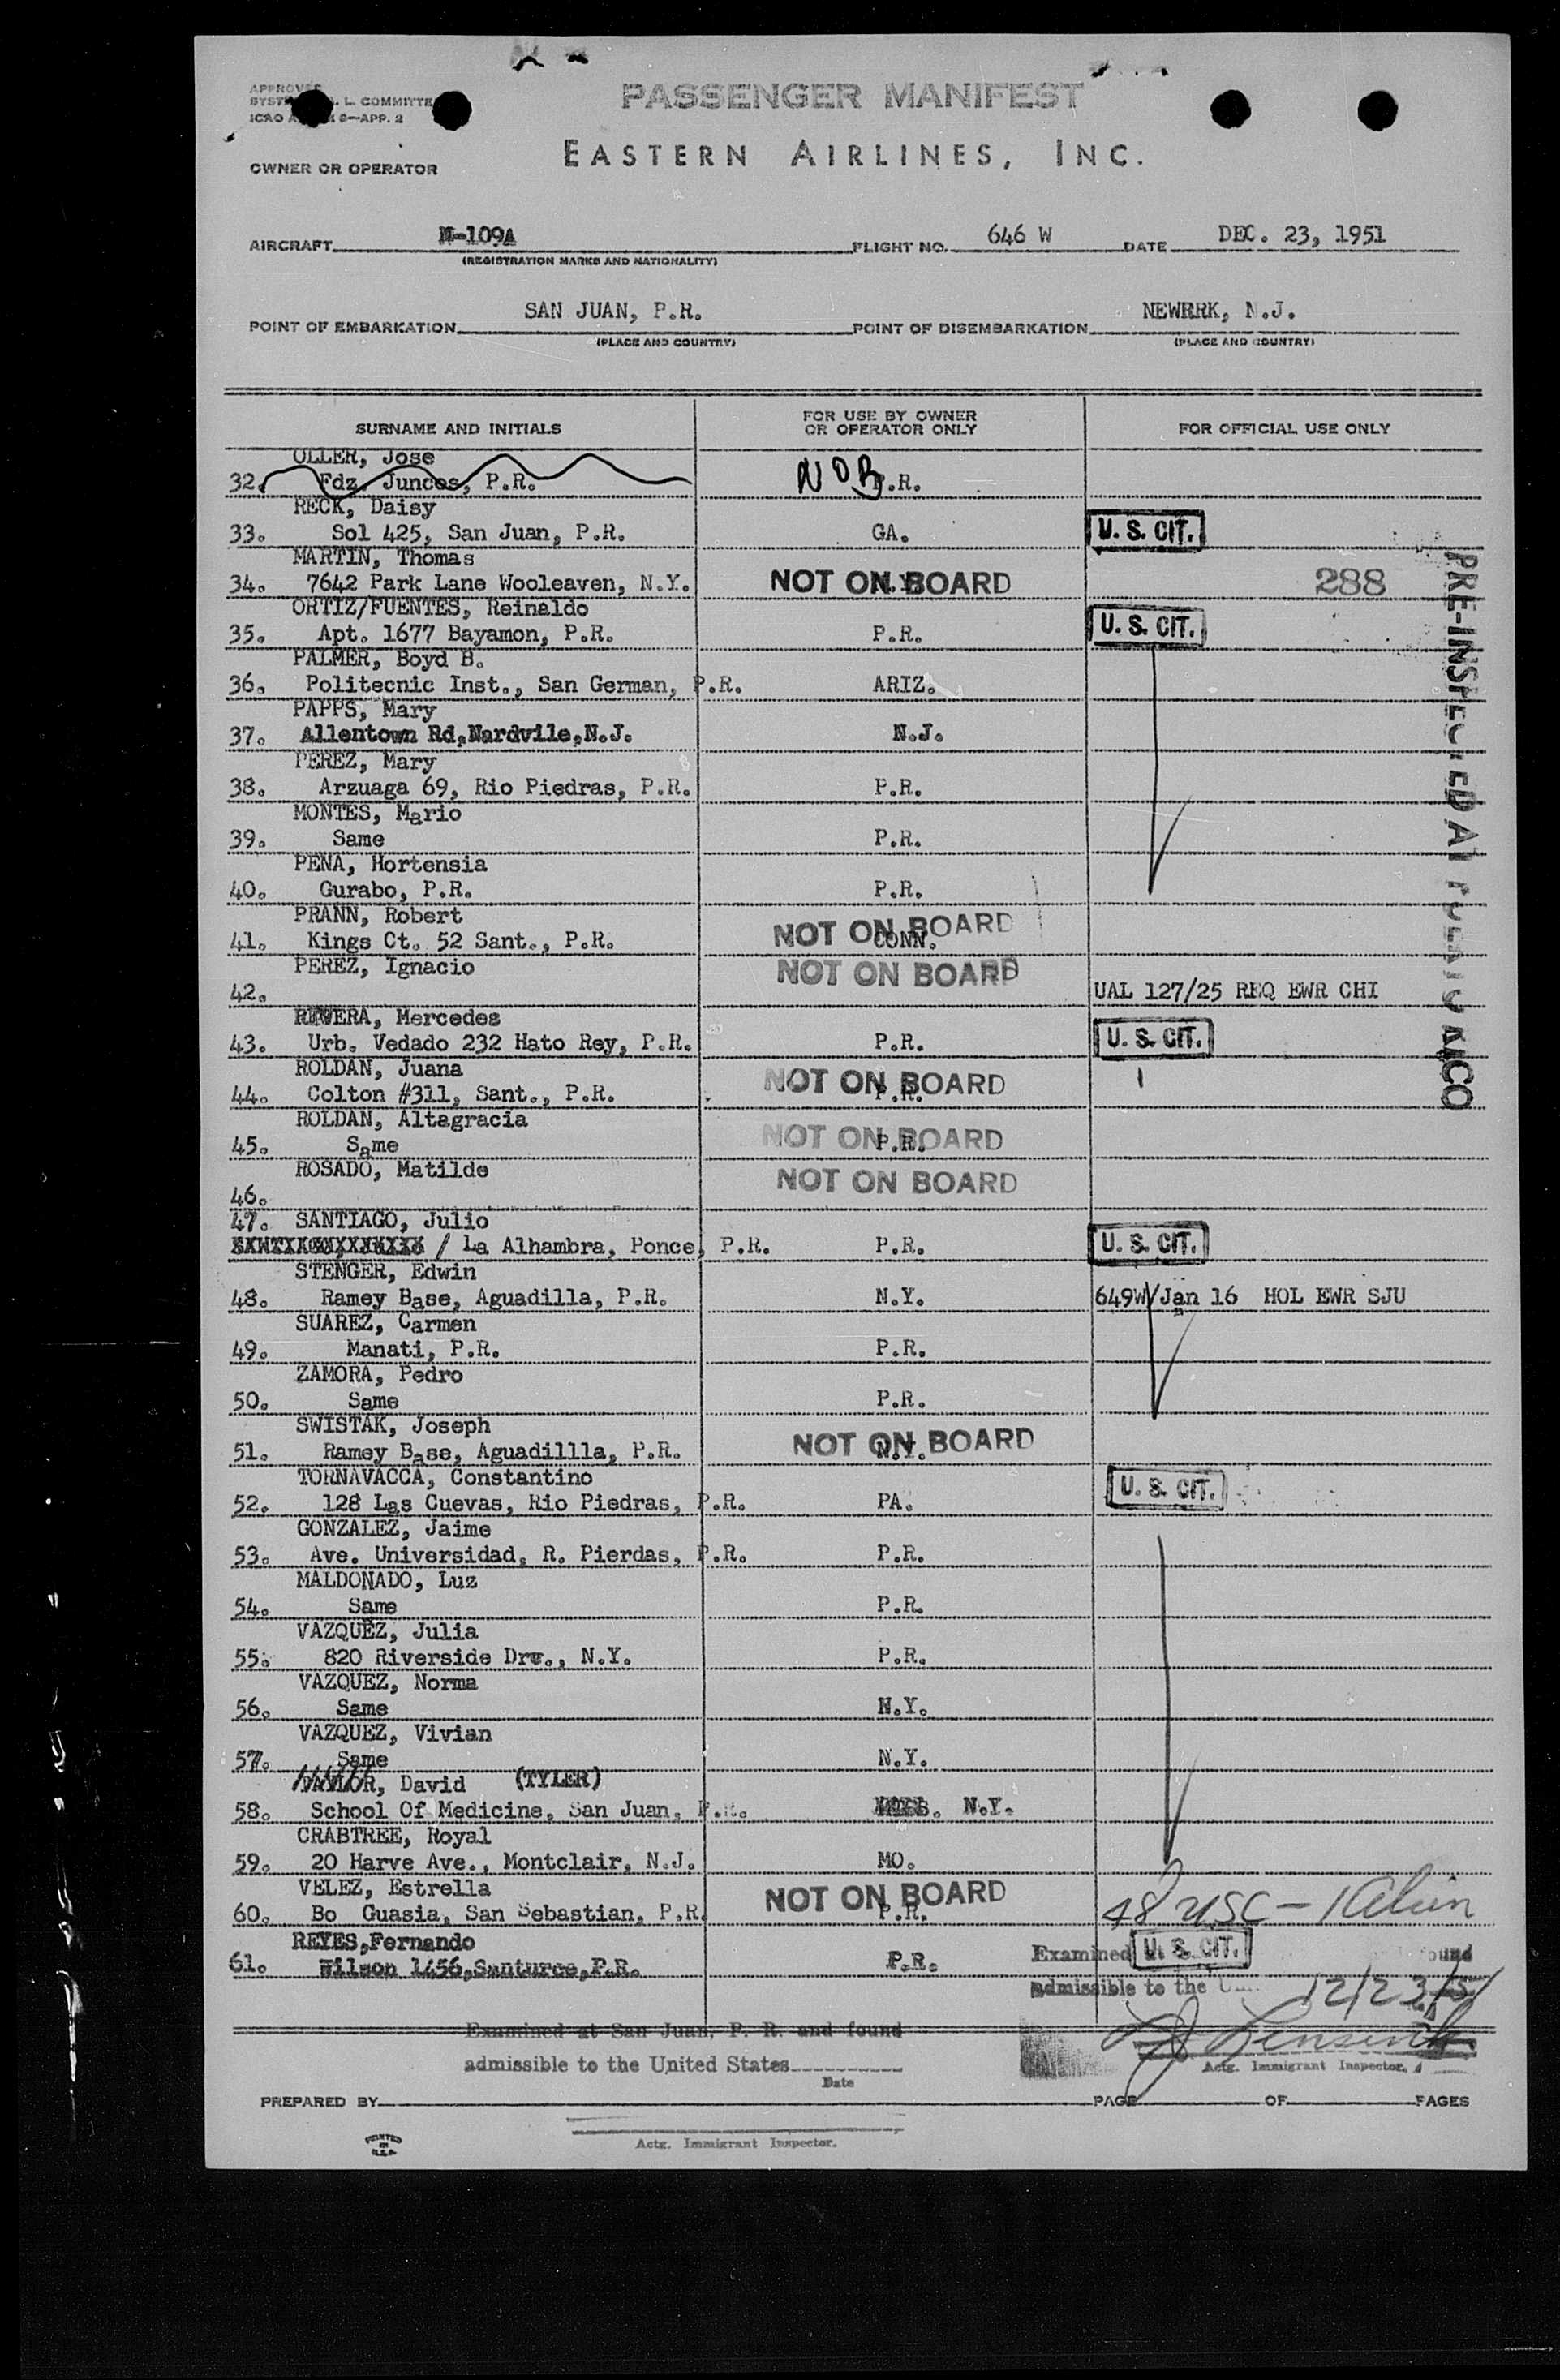 PASSENGER MANIFEST
EASTERN AIRLINES, INC.
OWNER OR OPERATOR
AIRCRAFT N-109A FLIGHT NO. 646 W DATE DEC. 23, 1951
(REGISTRATION MARKS AND NATIONALITY)
POINT OF EMBARKATION SAN JUAN, P.R. POINT OF DISEMBARKATION NEWRRK, N.J.
(PLACE AND COUNTRY) (PLACE AND COUNTRY)
SURNAME AND INITIALS FOR USE BY OWNER OR OPERATOR ONLY FOR OFFICIAL USE ONLY
OLLER, Jose
32. Fdz. Juncos, P.R. NOB P.R.
RECK, Daisy
33. Sol 425, San Juan, P.R. GA. U. S. CIT.
MARTIN, Thomas
34. 7642 Park Lane Wooleaven, N.Y. NOT ON BOARD 288
ORTIZ/FUENTES, Reinaldo
35. Apt. 1677 Bayamon, P.R. P.R. U. S. CIT.
PALMER, Boyd B.
36. Politecnic Inst., San German, P.R. ARIZ.
PAPPS, Mary
37. Allentown Rd,Nardvile,N.J. N.J.
PEREZ, Mary
38. Arzuaga 69, Rio Piedras, P.R. P.R.
MONTES, Mario
39. Same P.R.
PENA, Hortensia
40. Gurabo, P.R. P.R.
PRANN, Robert
41. Kings Ct. 52 Sant., P.R. NOT ON BOARD CONN.
PEREZ, Ignacio NOT ON BOARD
42. UAL 127/25 REQ EWR CHI
RIVERA, Mercedes
43. Urb. Vedado 232 Hato Rey, P.R. P.R. U. S. CIT.
ROLDAN, Juana
44. Colton #311, Sant., P.R. NOT ON BOARD P.R.
ROLDAN, Altagracia
45. Same NOT ON BOARD P.R.
ROSADO, Matilde NOT ON BOARD
46.
47. SANTIAGO, Julio
/ La Alhambra, Ponce, P.R. P.R. U. S. CIT.
STENGER, Edwin
48. Ramey Base, Aguadilla, P.R. N.Y. 649W/Jan 16 HOL EWR SJU
SUAREZ, Carmen
49. Manati, P.R. P.R.
ZAMORA, Pedro
50. Same P.R.
SWISTAK, Joseph
51. Ramey Base, Aguadillla, P.R. NOT ON BOARD N.Y.
TORNAVACCA, Constantino
52. 128 Las Cuevas, Rio Piedras, P.R. PA. U. S. CIT.
GONZALEZ, Jaime
53. Ave. Universidad, R. Pierdas, P.R. P.R.
MALDONADO, Luz
54. Same P.R.
VAZQUEZ, Julia
55. 820 Riverside Drv., N.Y. P.R.
VAZQUEZ, Norma
56. Same N.Y.
VAZQUEZ, Vivian
57. Same N.Y.
David (TYLER)
58. School Of Medicine, San Juan, P.R. N.Y.
CRABTREE, Royal
59. 20 Harve Ave., Montclair, N.J. MO.
VELEZ, Estrella
60. Bo Guasia, San Sebastian, P.R. NOT ON BOARD P.R. 48 USC - 1 Alien
REYES,Fernando
61. Wilson 1456,Santurce,P.R. P.R. Examined U. S. CIT. found
admissible to the 12/23/51
Examined at San Juan, P. R. and found
admissible to the United States
Date
Actg. Immigrant Inspector.
PREPARED BY PAGE OF PAGES
Actg. Immigrant Inspector.
PRINTED IN U.S.A.